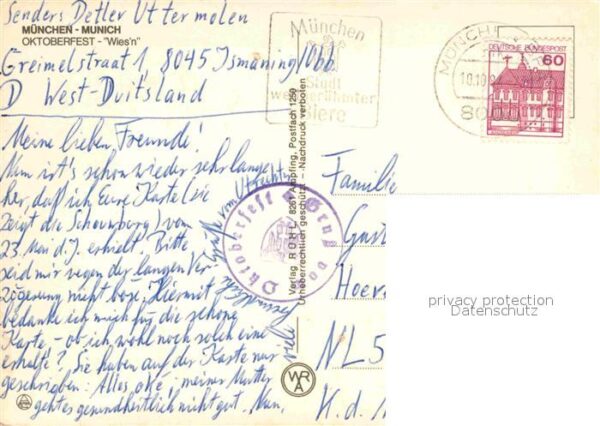 Senders Detlev Uttermolen
MÜNCHEN - MUNICH
OKTOBERFEST - "Wies'n"
Greimelstraat 1, 8045 Ismaning/Obb.
D West-Duitsland
München
Stadt
weltberühmter
Biere
MÜNCH
10.10
80
DEUTSCHE BUNDESPOST
60
Meine lieben Freunde!
Nun ist's schon wieder sehr lange
her, daß ich Eure Karte (sie
zeigt die Schouwburg) vom
23 Mai d.J. erhielt. Bitte
seid mir wegen der langen Ver-
zögerung nicht böse. Hiermit
bedanke ich mich für die schöne
Karte - ob ich wohl noch solch eine
erhalte? Sie haben auf der Karte nur
geschrieben: Alles oké, meiner Mutter
geht es gesundheitlich nicht gut. Nun,
viele
Oktoberfest Gruß
Verlag R O H L, 8261 Ampfing, Postfach 1250
Urheberrechtlich geschützt - Nachdruck verboten
WRA
Familie
NL 5
privacy protection
Datenschutz